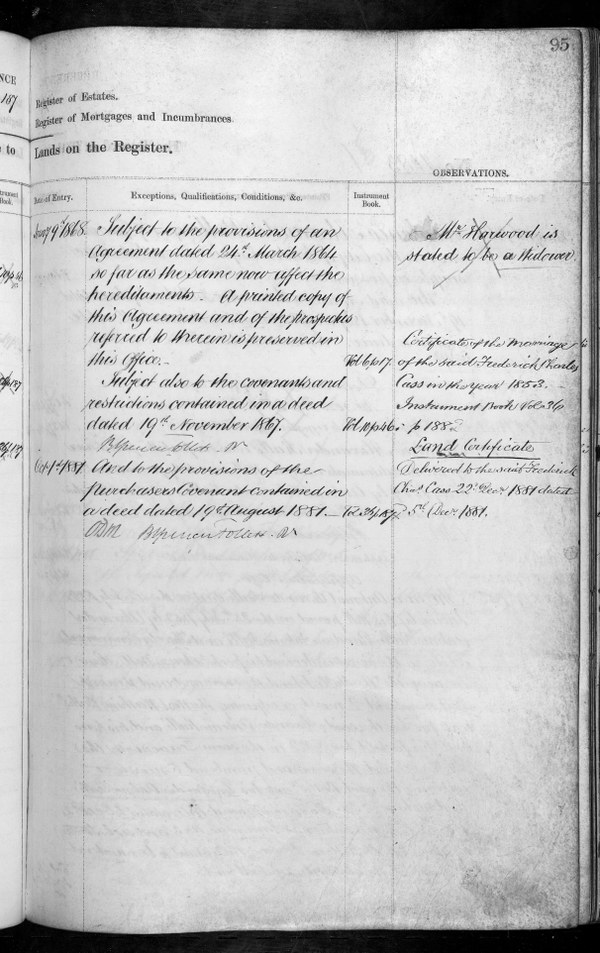 95
Register of Estates.
Register of Mortgages and Incumbrances
Lands on the Register.
OBSERVATIONS.
Date of Entry.
Exceptions, Qualifications, Conditions, &c.
Instrument Book.
9th 1868.
Subject to the provisions of an
Agreement dated 24th March 1864
so far as the same now affect the
hereditaments. A printed copy of
this Agreement and of the prospectus
referred to therein is preserved in
this Office.
Vol 6 p 17.
Subject also to the covenants and
restrictions contained in a deed
dated 19th November 1867.
Vol 10 p 46
Oct 1st 1881.
And to the provisions of the
purchasers Covenant contained in
a deed dated 19th August 1881.
Vol 36 p 187
Mr. Harwood is
stated to be a Widower
Certificate of the Marriage
of the said Frederick Charles
Cass in the Year 1853.
Instrument Book Vol 36
p 188
Land Certificate
Delivered to the said Frederick
Chas. Cass 22nd Decr 1881 dated
5th Decr 1881.